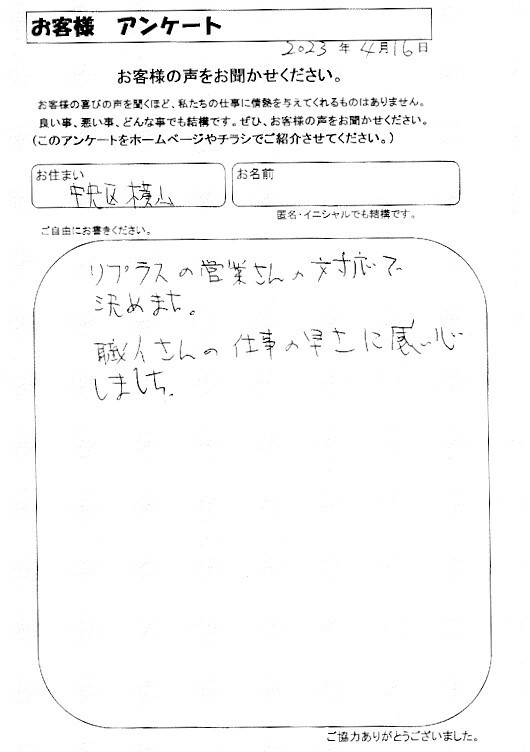 お客様 アンケート
2023 年 4月16日
お客様の声をお聞かせください。
お客様の喜びの声を聞くほど、私たちの仕事に情熱を与えてくれるものはありません。
良い事、悪い事、どんな事でも結構です。ぜひ、お客様の声をお聞かせください。
（このアンケートをホームページやチラシでご紹介させてください。）
お住まい
中央区 横山
お名前
匿名・イニシャルでも結構です。
ご自由にお書きください。
リプラスの営業さんの対応で
決めました。
職人さんの仕事の早さに感心
しました。
ご協力ありがとうございました。